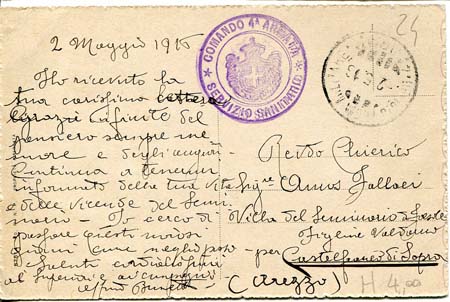 2 Maggio 1916
24
COMANDO 4ª ARMATA
SERVIZIO SANITARIO
Ho ricevuto la
tua carissima lettera
grazie infinite del
pensiero sempre me
more e degli auguri
Continua a tenermi
informato della tua vita
e delle vicende del Semi
nario - Io cerco di
passare questi noiosi
giorni come meglio posso
Saluta cordialissimi
al Superiore e ai compagni
Chierico
Sigr Amos
Villa del Seminario di Fiesole
Figline Valdarno
per Castelfranco di Sopra
(Arezzo)
H 4,00